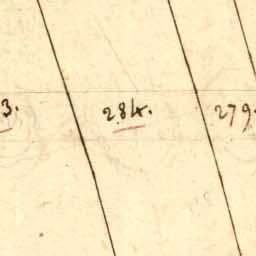 3. 284. 279.